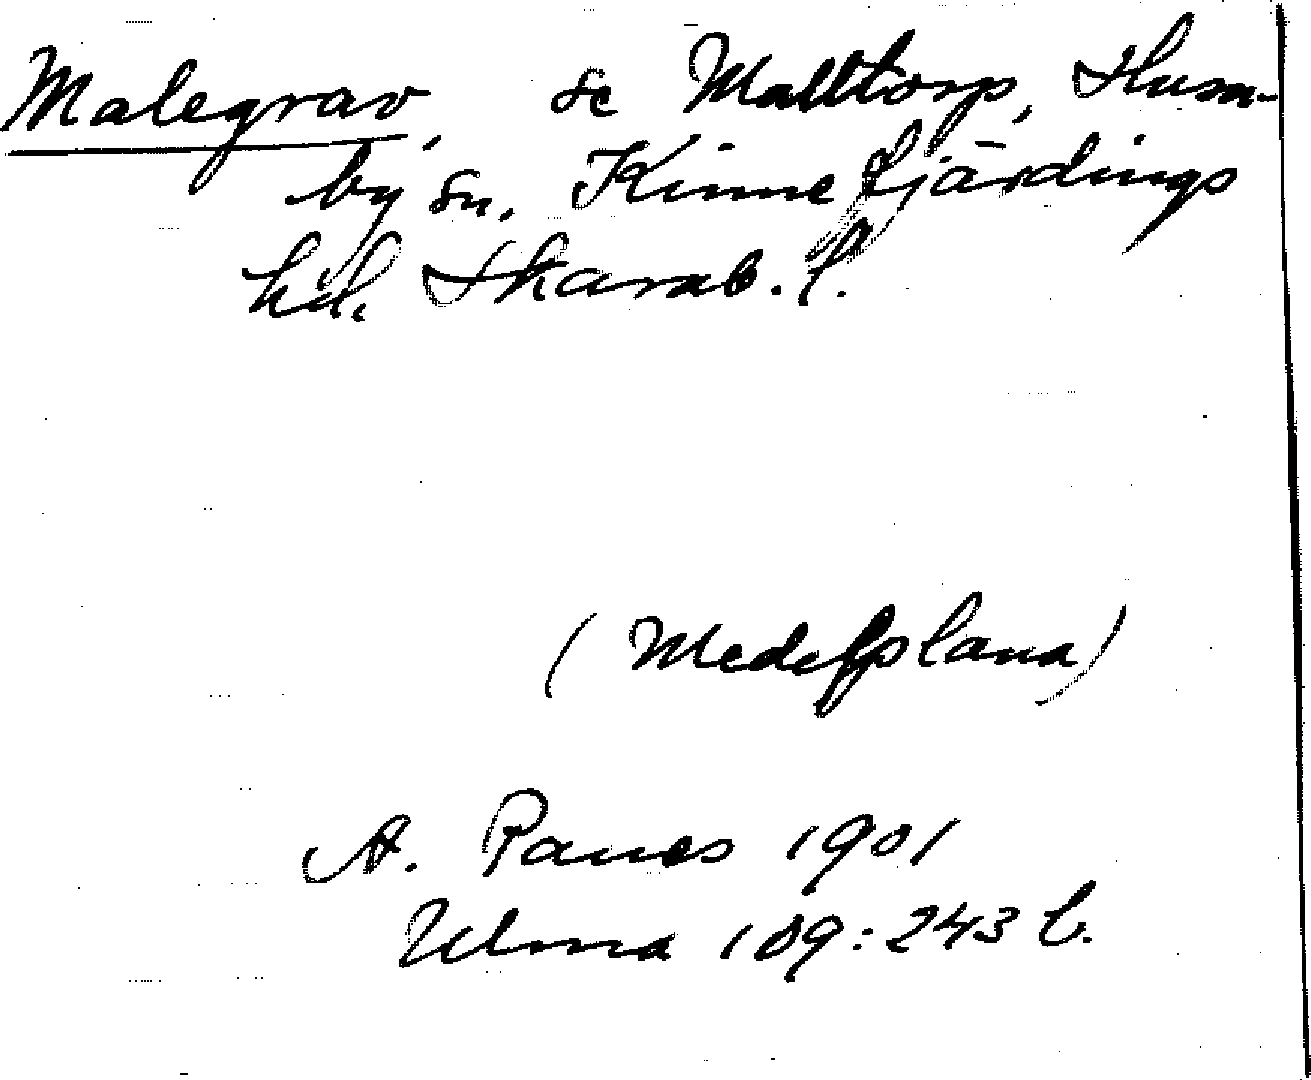 Malegrav, se Malltorp, Husa-
by sn. Kinnefjärdings
hd. Skarab. l.
(Medelplana)
A. Panes 1901
Ulma 109:243 b.